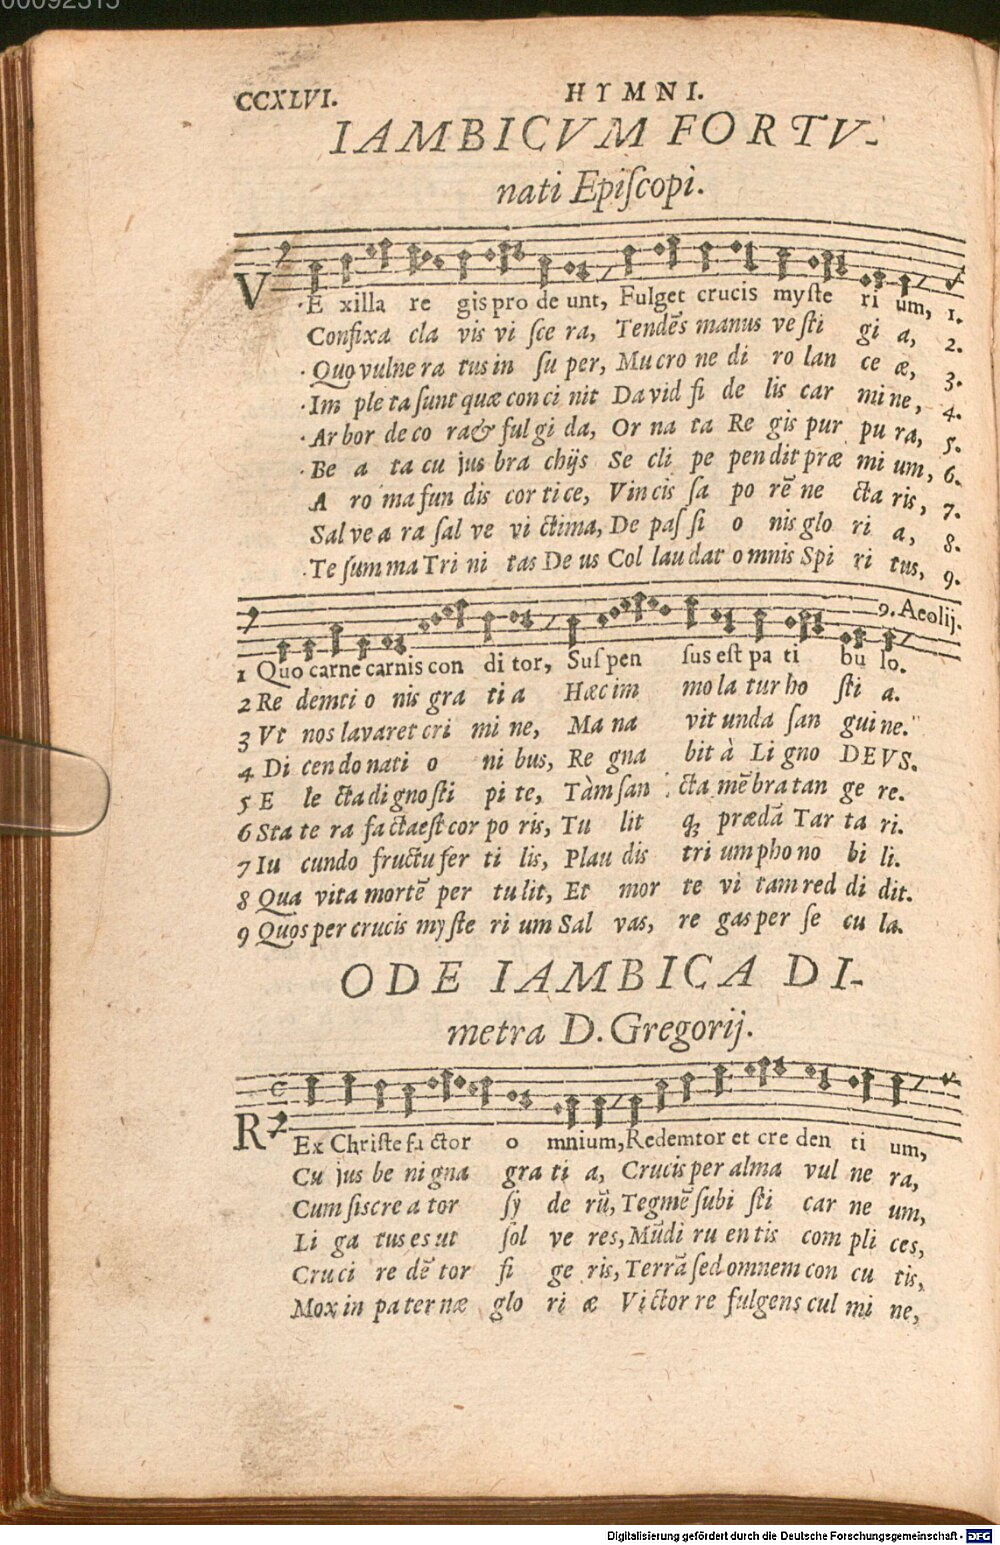 00092315
CCXLVI. HYMNI.
IAMBICVM FORTV-
nati Epiſcopi.
VE xilla re gis pro de unt, Fulget crucis myſte ri um, 1.
Confixa cla vis vi ſce ra, Tendēs manus ve ſti gi a, 2.
Quo vulne ra tus in ſu per, Mu cro ne di ro lan ce æ, 3.
Im ple ta ſunt quæ con ci nit David fi de lis car mi ne, 4.
Ar bor de co ra & ful gi da, Or na ta Re gis pur pu ra, 5.
Be a ta cu jus bra chijs Se cli pe pen dit præ mi um, 6.
A ro ma fun dis cor ti ce, Vin cis ſa po rē ne cta ris, 7.
Sal ve a ra ſal ve vi ctima, De paſ ſi o nis glo ri a, 8.
Te ſum ma Tri ni tas De us Col lau dat o mnis Spi ri tus, 9.
9. Aeolij.
1 Quo carne carnis con di tor, Suſ pen ſus eſt pa ti bu lo.
2 Re demti o nis gra ti a Hæc im mo la tur ho ſti a.
3 Vt nos lavaret cri mi ne, Ma na vit unda ſan gui ne.
4 Di cen do nati o ni bus, Re gna bit à Li gno DEVS.
5 E le cta di gno ſti pi te, Tàm ſan cta mēbra tan ge re.
6 Sta te ra fa cta eſt cor po ris, Tu lit q; prædā Tar ta ri.
7 Iu cundo fructu fer ti lis, Plau dis tri um pho no bi li.
8 Qua vita mortē per tu lit, Et mor te vi tam red di dit.
9 Quos per crucis my ſte ri um Sal vas, re gas per ſe cu la.
ODE IAMBICA DI-
metra D. Gregorij.
REx Chriſte fa ctor o mnium, Redemtor et cre den ti um,
Cu jus be ni gna gra ti a, Crucis per alma vul ne ra,
Cum ſis cre a tor ſy de rū, Tegmē ſubi ſti car ne um,
Li ga tus es ut ſol ve res, Mūdi ru en tis com pli ces,
Cruci re dē tor fi ge ris, Terrā ſed omnem con cu tis,
Mox in pa ter næ glo ri æ Victor re fulgens cul mi ne,
Digitalisierung gefördert durch die Deutsche Forschungsgemeinschaft - DFG